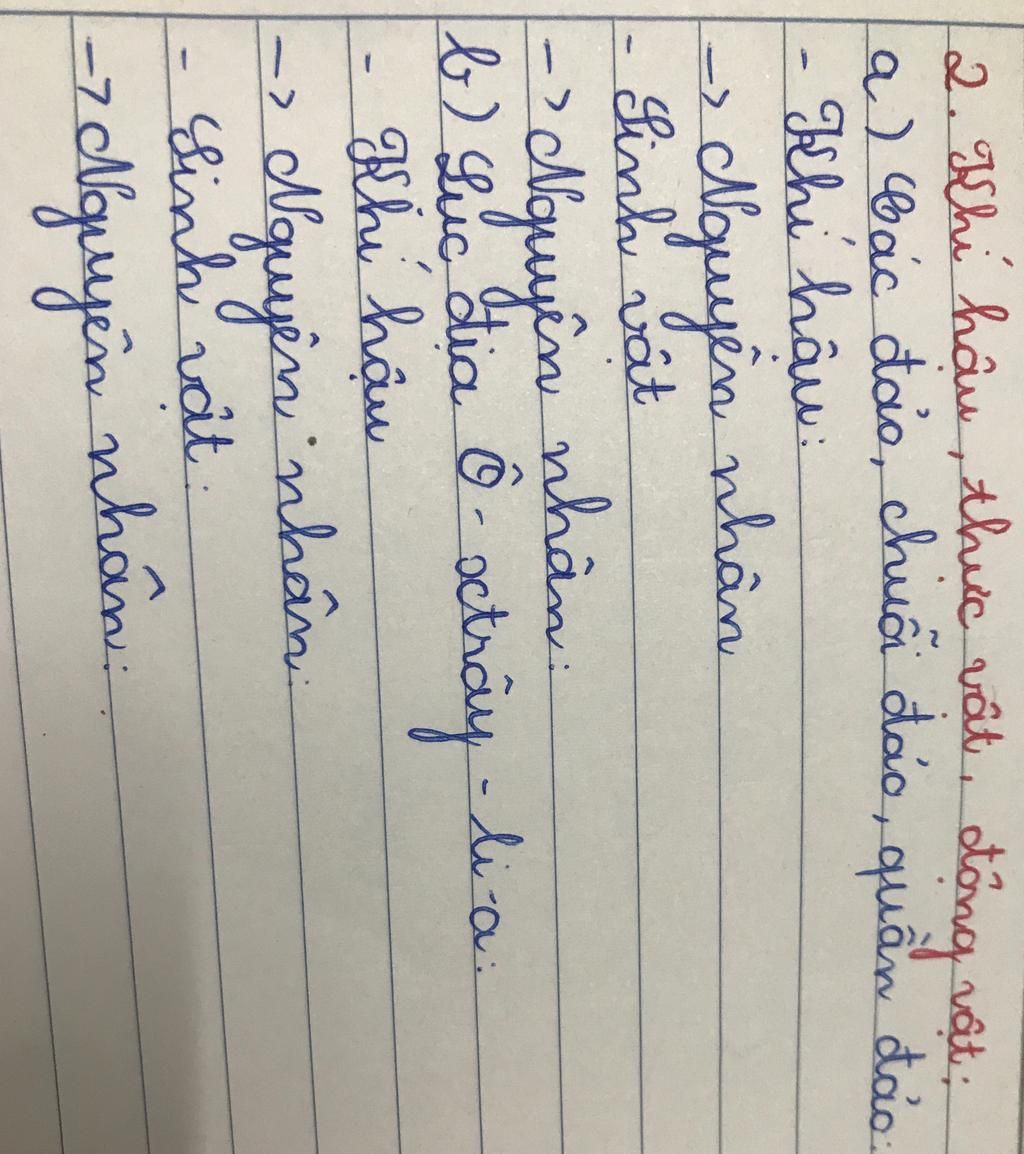 2. Khí hậu, thực vật, động vật:
a) Các đảo, chuỗi đảo, quần đảo:
- Khí hậu:
-> Nguyên nhân
- Sinh vật
-> Nguyên nhân:
b) Lục địa Ô - xtrây - li -a:
- Khí hậu
-> Nguyên nhân:
- Sinh vật:
-> Nguyên nhân: